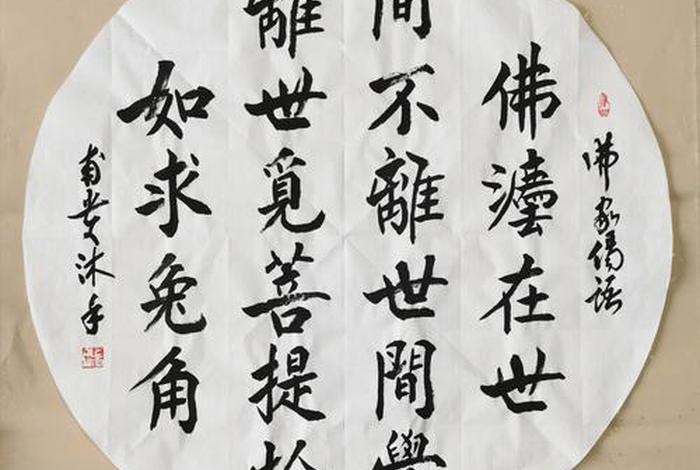 佛家偈語
佛灋在世
間不離世間
離世覓菩提
如求兔角
沐手